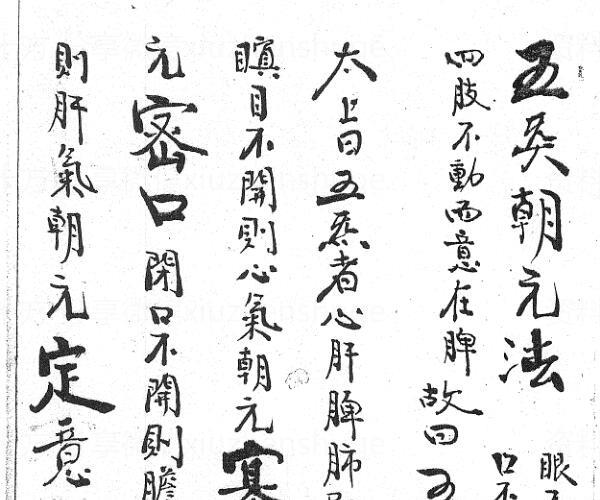 五炁朝元法
眼
口不
四肢不動而意在脾故曰五
太上曰五炁者心肝脾肺
瞑目不開則心氣朝元
元密口閉口不開則
則肝氣朝元定意